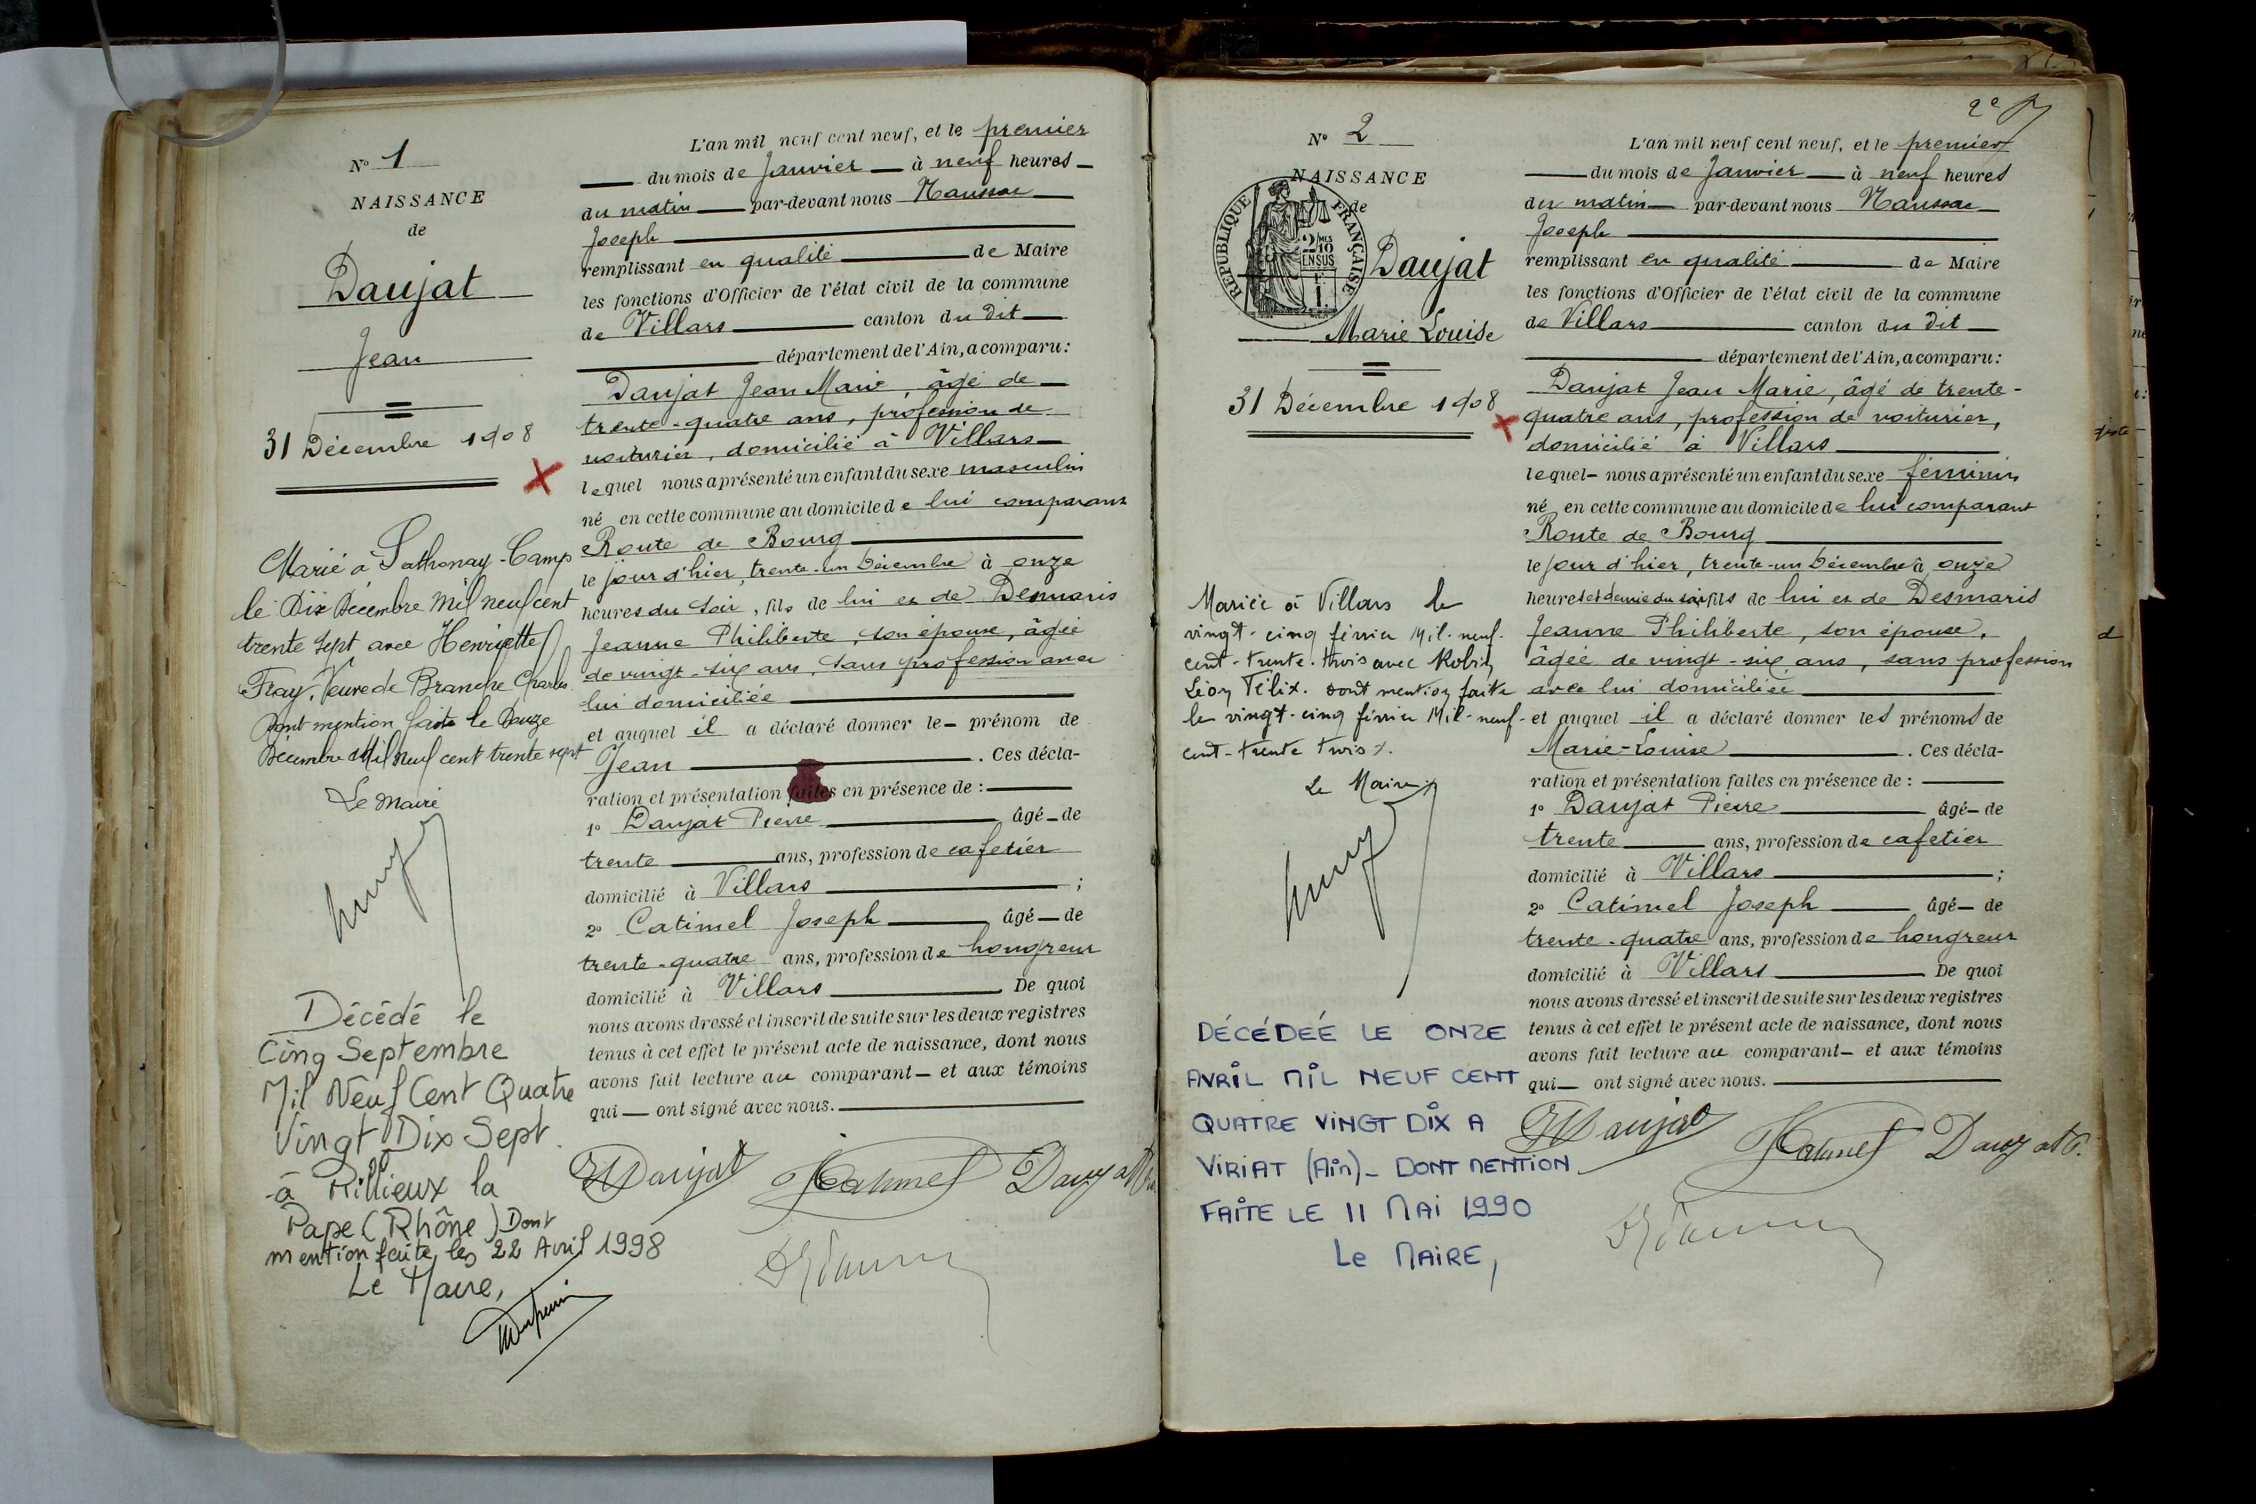 N° 1
NAISSANCE
de
Daujat
Jean
31 Décembre 1908
Marié à Sathonay-Camp
le Dix Décembre Mil neuf cent
trente sept avec Henriette
Fray, Veuve de Branche Charles.
Dont mention faite le Douze
Décembre Mil neuf cent trente sept
Le Maire
Décédé le
Cinq Septembre
Mil Neuf Cent Quatre
Vingt Dix Sept
à Rillieux la
Pape (Rhône) Dont
mention faite, le 22 Avril 1998
Le Maire,
L'an mil neuf cent neuf, et le premier
du mois de Janvier à neuf heures
du matin par-devant nous
Joseph
remplissant en qualité de Maire
les fonctions d'Officier de l'état civil de la commune
de Villars canton du dit
département de l'Ain, a comparu:
Daujat Jean Marie, âgé de
trente-quatre ans, profession de
voiturier, domicilié à Villars
lequel nous a présenté un enfant du sexe masculin
né en cette commune au domicile de lui comparant
Route de Bourg
le jour d'hier, trente-un Décembre à onze
heures du soir, fils de lui et de Desmaris
Jeanne Philiberte, son épouse, âgée
de vingt-six ans, sans profession avec
lui domiciliée
et auquel il a déclaré donner le prénom de
Jean . Ces décla-
ration et présentation faites en présence de :
1° Daujat Pierre âgé de
trente ans, profession de cafetier
domicilié à Villars ;
2° Catimel Joseph âgé de
trente-quatre ans, profession de hongreur
domicilié à Villars De quoi
nous avons dressé et inscrit de suite sur les deux registres
tenus à cet effet le présent acte de naissance, dont nous
avons fait lecture au comparant et aux témoins
qui ont signé avec nous.
Daujat Catimel Daujat
N° 2
NAISSANCE
de
RÉPUBLIQUE FRANÇAISE
Daujat
Marie Louise
31 Décembre 1908
Mariée à Villars le
vingt-cinq février Mil-neuf-
cent-trente-trois avec Robin
Léon Félix. dont mention faite
le vingt-cinq février Mil-neuf-
cent-trente trois.
Le Maire
DÉCÉDEÉ LE ONZE
AVRIL MIL NEUF CENT
QUATRE VINGT DIX A
VIRIAT (Ain)_ DONT MENTION
FAITE LE 11 MAI 1990
LE MAIRE,
2e
L'an mil neuf cent neuf, et le premier
du mois de Janvier à neuf heures
du matin par-devant nous
Joseph
remplissant en qualité de Maire
les fonctions d'Officier de l'état civil de la commune
de Villars canton du dit
département de l'Ain, a comparu:
Daujat Jean Marie, âgé de trente-
quatre ans, profession de voiturier,
domicilié à Villars
lequel nous a présenté un enfant du sexe féminin
né en cette commune au domicile de lui comparant
Route de Bourg
le jour d'hier, trente-un Décembre à onze
heures et demie du soir fils de lui et de Desmaris
Jeanne Philiberte, son épouse,
âgée de vingt-six ans, sans profession
avec lui domiciliée
et auquel il a déclaré donner les prénoms de
Marie-Louise . Ces décla-
ration et présentation faites en présence de :
1° Daujat Pierre âgé de
trente ans, profession de cafetier
domicilié à Villars ;
2° Catimel Joseph âgé de
trente-quatre ans, profession de hongreur
domicilié à Villars De quoi
nous avons dressé et inscrit de suite sur les deux registres
tenus à cet effet le présent acte de naissance, dont nous
avons fait lecture au comparant et aux témoins
qui ont signé avec nous.
Daujat Catimel Daujat P.